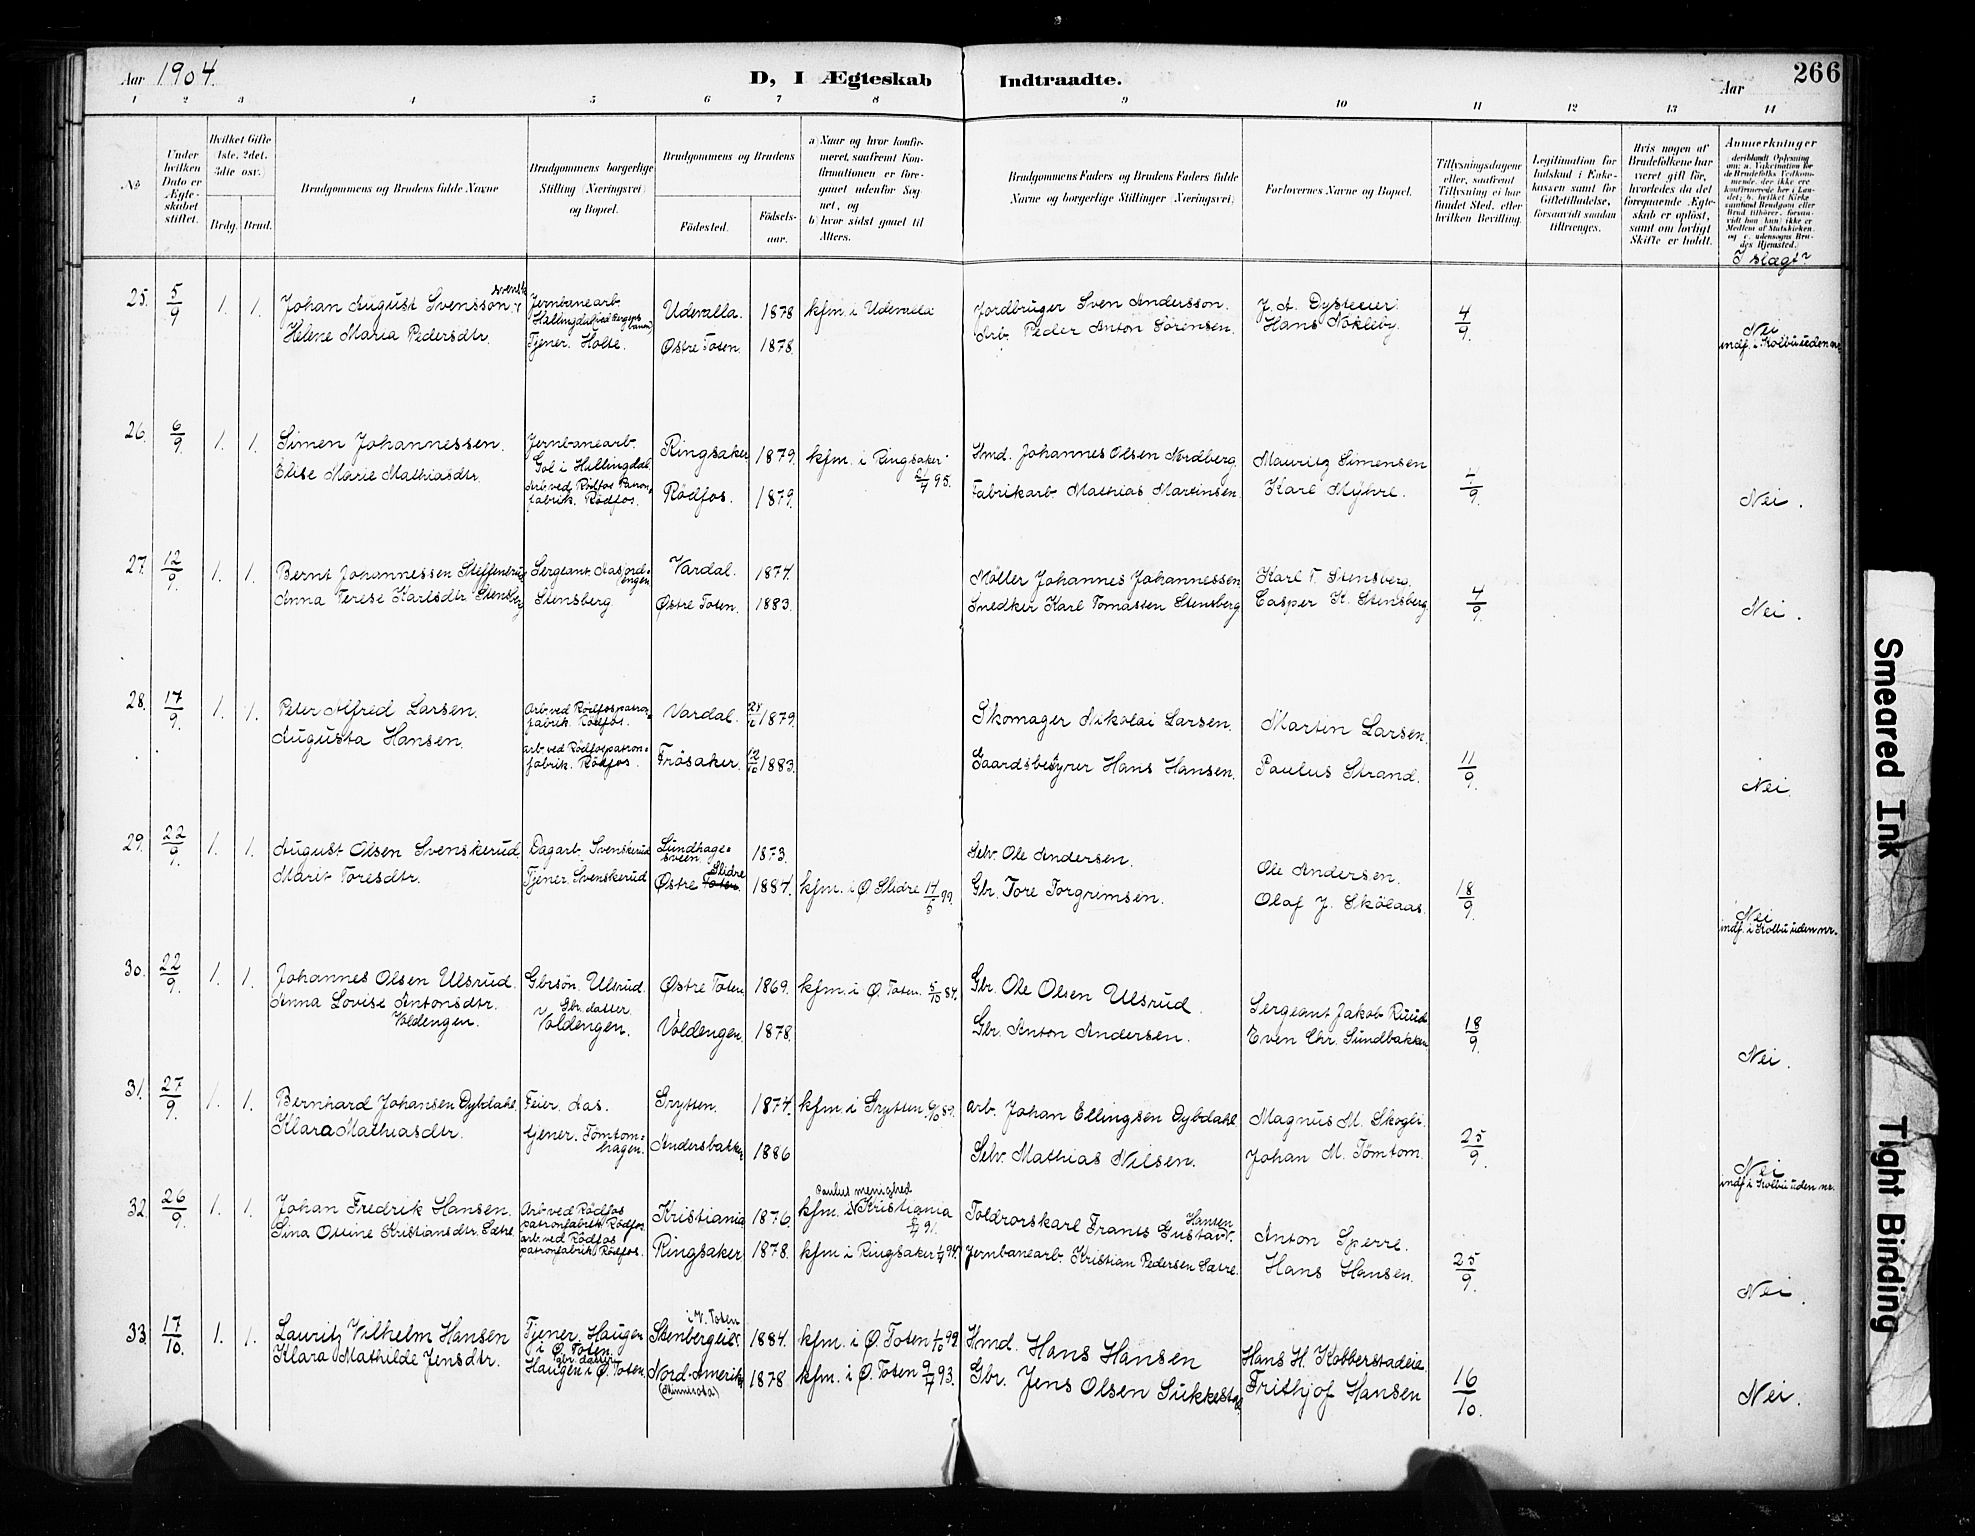 Aar 1904.
D, I Ægteskab Indtraadte.
Aar
266
1 2 3 4 5 6 7 8 9 10 11 12 13 14
No
Under hvilken Dato er Ægteskabet stiftet.
Hvilket Gifte 1ste, 2det, 3die osv.)
Brdg. Brud.
Brudgommens og Brudens fulde Navne
Brudgommens borgerlige Stilling (Næringsvei) og Bopæl.
Brudgommens og Brudens
Fødested.
Fødselsaar.
a) Naar og hvor konfirmeret, saafremt Konfirmationen er foregaaet udenfor Sognet, og
b) hvor sidst gaaet til Alters.
Brudgommens Faders og Brudens Faders fulde Navne og borgerlige Stillinger (Næringsvei)
Forlovernes Navne og Bopæl.
Tillysningsdagene eller, saafremt Tillysning ei har fundet Sted, efter hvilken Bevilling.
Legitimation for Indskud i Enkekassen samt for Giftetilladelse, forsaavidt saadan tiltrænges.
Hvis nogen af Brudefolkene har været gift før, hvorledes da det foregaaende Ægteskab er opløst, samt om lovligt Skifte er holdt.
Anmerkninger
I slægt?
25. 5/9 1. 1. Johan August Svensson svensk Jernbanearb. Uddevalla. 1878 kfm. i Uddevalla Jordbruger Sven Andersson. 4/9. Nei
Helene Maria Pedersdtr. Tjener. Holte. Østre Toten. 1878. Arb. Peder Anton Sörensen. Hans Nökleby. indf. i Kolbu uden nr.
26. 6/9 1. 1. Simen Johannessen. Jernbanearb. Gol i Hallingdal. Ringsaker 1879. kfm. i Ringsaker 95. Smd. Johannes Olsen Nordberg. Mauritz Simensen
Elise Marie Mathiasdtr. Arb. ved Rödfos Patronfabrik. Rödfos. Rödfos. 1879. Fabrikarb. Mathias Martinsen. Karl Myhre. 4/9. Nei.
27. 12/9. 1. 1. Bernt Johannessen Steffensrud Sergeant. Aas Vardal. 1874. Möller Johannes Johannessen Karl T. Stensberg.
Anna Terese Karlsdtr. Stensberg Stensberg Østre Toten. 1883. Snedker Karl Tomassen Stensberg Casper K. Stensberg. 4/9. Nei.
28. 17/9. 1. 1. Peter Alfred Larsen. Arb. ved Rödfos patronfabrik. Rödfos. Vardal. 1879. Skomager Nikolai Larsen. Martin Larsen.
Augusta Hansen. arb. ved Rödfos patronfabrik. Rödfos. TröSaker. 12/10 1883. Gaardsbestyrer Hans Hansen. Paulus Strand. 11/9. Nei.
29. 22/9. 1. 1. August Olsen Svenskerud Dagarb. Svenskerud Lundhagesveen. 1873. Selv. Ole Andersen. Ole Andersen.
Marit Toresdtr. Tjener. Svenskerud Østre Toten. Slidre 1884. kfm. i Ø Slidre 14/5 99. Gbr. Tore Torgrimsen. Olaf J. Skölaas. 18/9. Nei
indf. i Kolbu uden nr.
30. 22/9. 1. 1. Johannes Olsen Ulsrud. Gbrsön. Ulsrud. Østre Toten 1869. kfm. i Ø. Toten. 5/10 84. Gbr. Ole Olsen Ulsrud. Sergeant Jakob Ruud
Anna Lovise Antonsdtr. Voldengen. Gbr. datter. Voldengen. Voldengen. 1878. Gbr. Anton Andersen. Even Chr. Sundbakken 18/9. Nei.
31. 27/9. 1. 1. Bernhard Johansen Dybdahl. Feier. Aas. Grytten. 1874. kfm. i Grytten 6/10 89. Arb. Johan Ellingsen Dybdahl Magnus M. Skogli.
Klara Mathiasdtr. tjener. Tömtomhagen. Andersbakken 1886 Selv. Mathias Nilsen. Johan M. Tömtom. 25/9. Nei
indf. i Kolbu uden nr.
32. 26/9. 1. 1. Johan Fredrik Hansen. Arb. ved Rödfos patronfabrik Rödfos. Kristiania 1876. kfm. i Paulus menighed Kristiania 91. Toldrorskarl Frants Gustav Hansen. Anton Sperre.
Sina Ottine Kristiansdtr. Sætre. arb. ved Rödfos patronfabrik. Rödfos. Ringsaker 1878. kfm i Ringsaker 94. Jernbanearb. Kristian Pedersen Sætre. Hans Hansen. 25/9. Nei.
33. 17/10. 1. 1. Lauritz Vilhelm Hansen Tjener. Haugen i Ø. Toten. Stenbergeie. i V. Toten 1884. kfm. i Ø. Toten 1/10 99. Hmd. Hans Hansen Hans H. Kobberstadeie.
Klara Mathilde Jensdtr. gbr. datter Haugen i Ø. Toten. Nord-Amerika (Minnesota) 1878 kfm. i Ø. Toten 9/7 93. Gbr. Jens Olsen Sukkestad. Frithjof Hansen 16/10. Nei.
Smeared Ink
Tight Binding